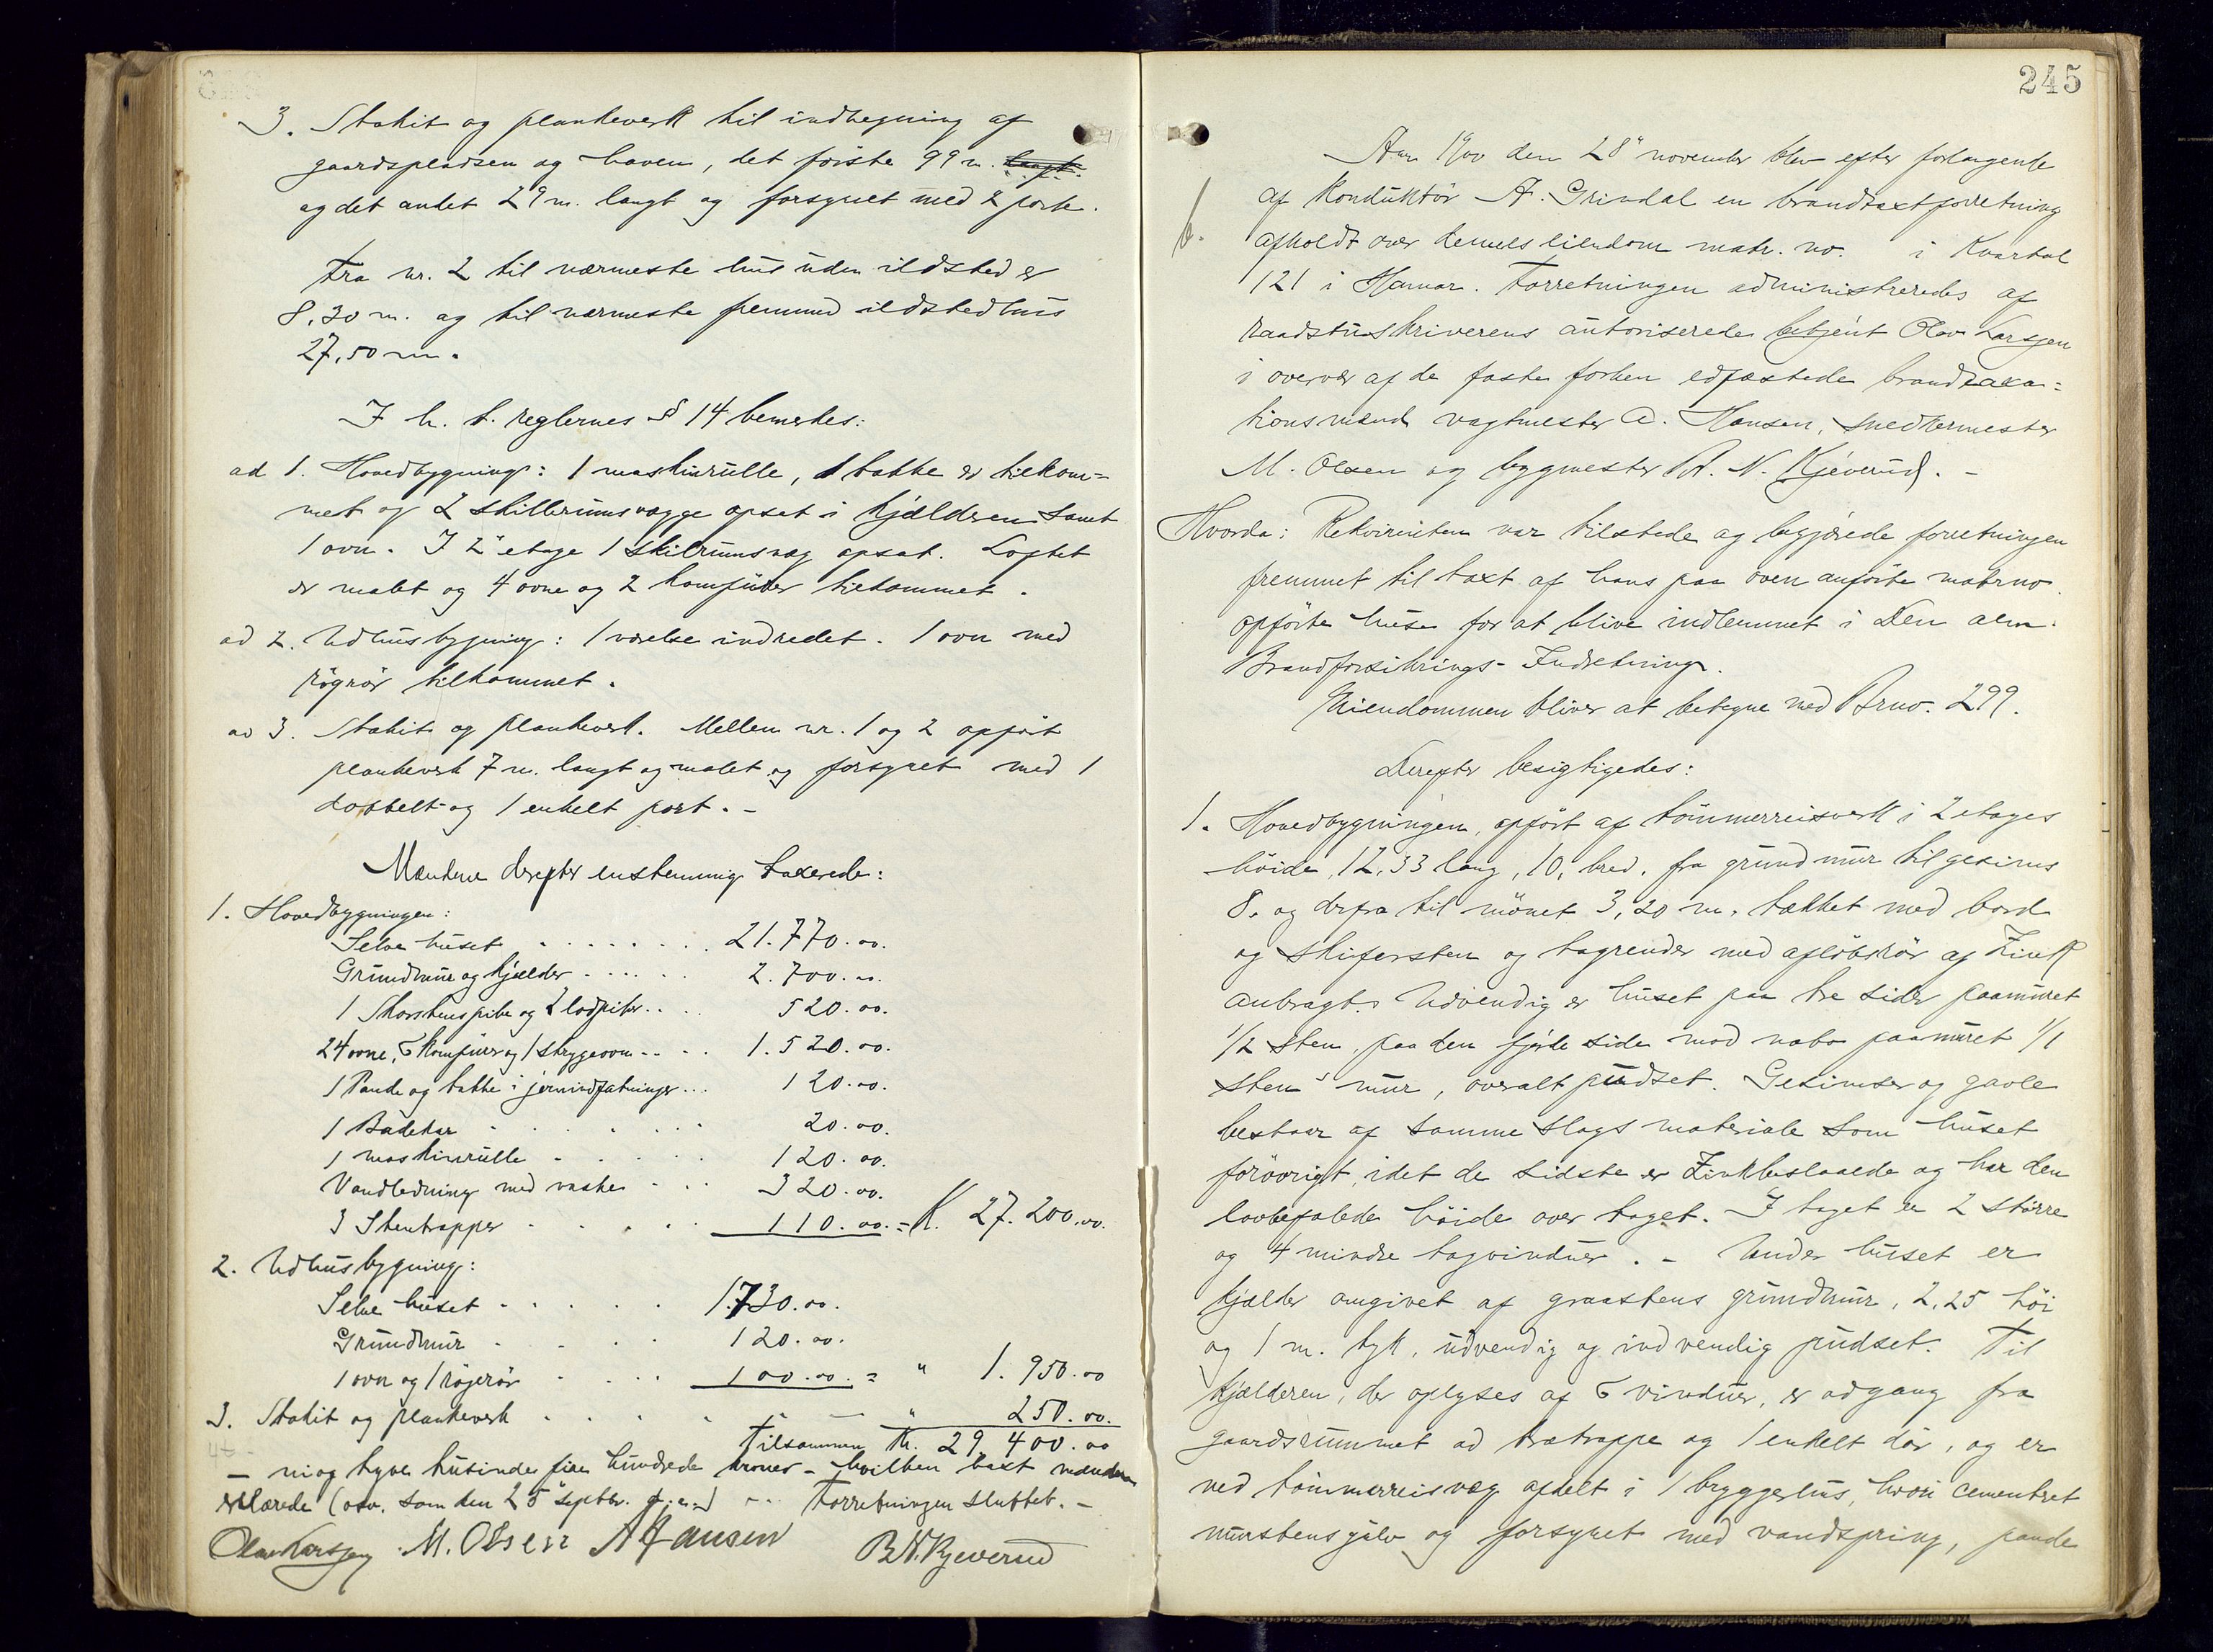 3. Stakit og plankeverk til indhegning af
gaardspladsen og haven, det første 99 m. langt
og det andet 29 m. langt og forsynet med 2 porte.
Fra nr. 2 til nærmeste hus uden ildsted er
8,30 m. og til nærmeste fremmed ildstedhus
27,50 m.
I h. t. reglernes § 14 bemerkes:
ad 1. Hovedbygning: 1 maskinrulle, 1 takke er tilkom=
met og 2 skillerumsvægge opsat i kjælderen samt
1 ovn. I 2' etage 1 skilrumsvæg opsat. Loftet
er malet og 4 ovne og 2 komfurer tilkommet.
ad 2. Udhusbygning: 1 værelse indredet. 1 ovn med
røgrør tilkommet.
ad 3. Stakit og plankeverk. Mellem nr. 1 og 2 opført
plankeverk 7 m. langt og malet og forsynet med 1
dobbelt og 1 enkelt port. -
Mændene derefter enstemmig taxerede:
1. Hovedbygningen:
Selve huset 21.770.00.
Grundmur og kjælder 2.700.00.
1 Skorstenspibe og 2 lodpiber 520.00.
24 ovne, 6 Komfurer og 1 strygeovn 1.520.00.
1 Pande og takke i jernindfatninger 120.00.
1 Badekar 20.00.
1 maskinrulle 120.00.
Vandledning med vaske 320.00.
3 Stentrapper 110.00. = K. 27.200.00.
2. Udhusbygning:
Selve huset 1.730.00.
Grundmur 120.00.
1 ovn og 1 røgerør 100.00. = " 1.950.00
3. Stakit og plankeverk " 250.00.
Tilsammen Kr. 29.400.00
- niog tyve tusinde fire hundrede kroner - hvilken taxt mændene
erklærede (osv. som den 25' septbr. ) - Forretningen sluttet. -
Olav Larsgen M. Olsen A Hansen B. N. Kjeverud
245
Aar 1900 den 28' november blev efter forlangende
af Konduktør A. Grindal en brandtaxtforretning
afholdt over dennes eiendom matr. no. i Kvartal
121 i Hamar. Forretningen administreredes af
raadstuskriverens autoriserede betjent Olav Larsgen
i overvær af de faste forhen edfæstede brandtaxa=
tionsmænd vagtmester A. Hansen, snedkermester
M. Olsen og bygmester B. N. Kjeverud. -
Hvorda: Rekvirenten var tilstede og begjærede forretningen
fremmet til taxt af hans paa oven anførte matrno.
opførte huse for at blive indlemmet i Den alm.
Brandforsikrings-Indretning.
Eiendommen bliver at betegne med Brno. 299.
Derefter besigtigedes:
1. Hovedbygningen, opført af tømmerreisverk i 2 etages
høide, 12,33 lang, 10, bred, fra grundmur til gesims
8, og derfra til mønet 3,20 m, takket med bord
og skifersten og tagrender med afløbsrør af Zink
anbragt. Udvendig er huset paa tre sider paamuret
1/2 sten, paa den fjerde side mod nabo paamuret 1/1
sten's mur, overalt pudset. Gesimser og gavle
bestaar af samme slags materiale som huset
forøvrigt, idet de sidste er Zinkbeslaaede og har den
lovbefalede høide over taget. I taget er 2 større
og 4 mindre tagvinduer. - Under huset er
kjælder omgivet af graastens grundmur, 2,25 høi
og 1 m. tyk, udvendig og indvendig pudset. Til
kjælderen, der oplyses af 6 vinduer, er adgang fra
gaardsrummet ad trætrappe og 1 enkelt dør, og er
ved tømmerreisvæg afdelt i 1 bryggerhus, hvori cementeret
murstensgulv og forsynet med vandspring, pande